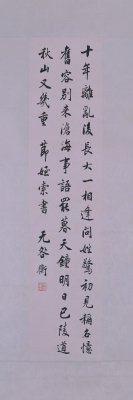 十年離亂後長大一相逢問姓驚初見稱名憶
舊容別來滄海事語罷暮天鐘明日巴陵道
秋山又幾重 節姪索書 无咎 衡